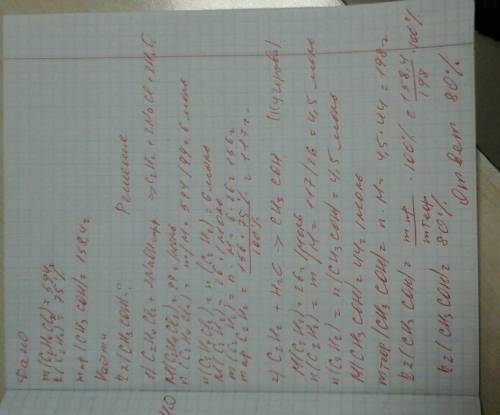 Дано
m(C2H4Cl2)=594г
η(C2H2)=75%
mпр(CH3COH)=158,4г
Найти
η2(CH3COH)-?
Решение
1) C2H4Cl2+2NaOHспирт → C2H2+2NaCl+2H2O
M(C2H4Cl2)=99г/моль
n(C2H4Cl2)=m/M=594/99=6 моль
n(C2H4Cl2)=n(C2H2)=6 моль
M(C2H2)=26г/моль
m(C2H2)=n·M=6·26=156г
mпр C2H2=156·75%/100%=117г.
2) C2H2+H2O → CH3COH (Кучерова)
M(C2H2)=26г/моль
n(C2H2)=m/M=117/26=4,5 моль
n(C2H2)=n(CH3COH)=4,5 моль
M(CH3COH)=44г/моль
mтеор(CH3COH)=n·M=4,5·44=198г
η2(CH3COH)=mпр/mтеор·100%=158,4/198·100%
η2(CH3COH)=80%
Ответ 80%